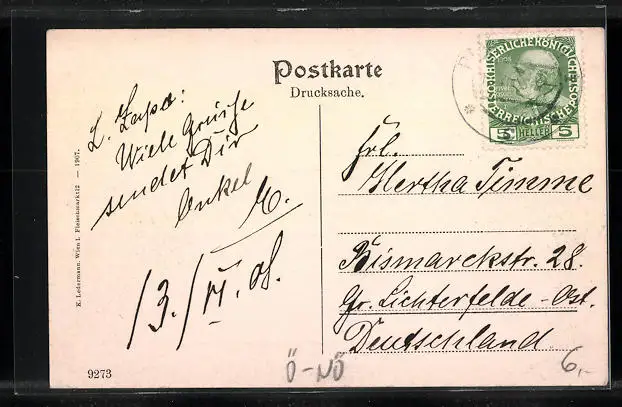 Postkarte
Drucksache.
Viele Grüße
sendet Dir
Onkel
13./VI. 08.
Frl.
Hertha Timme
Bismarckstr. 28.
Gr. Lichterfelde-Ost.
Deutschland.
K. Ledermann, Wien I. Fleischmarkt 12 — 1907.
9273
Ö-NÖ
6,-
KAISERLICHE KÖNIGLICHE
ÖSTERREICHISCHE POST
5 HELLER 5